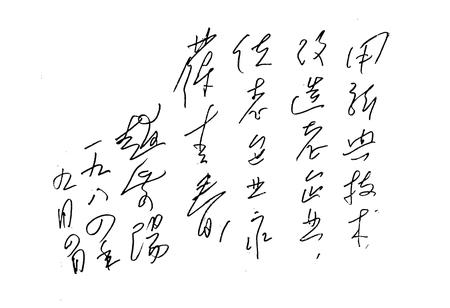 用新兴技术
改造老企业，
使老企业永
葆青春，
趙紫陽
一九八四年
九月四日